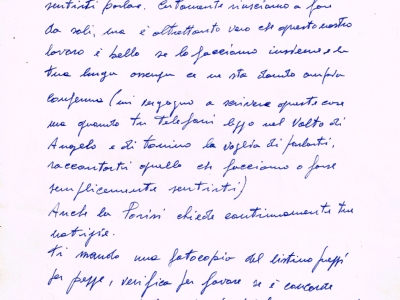 sentirti parlare. Certamente riusciamo a fare
da soli, ma è altrettanto vero che questo nostro
lavoro è bello se lo facciamo insieme e la
tua lunga assenza ce ne sta dando ampia
conferma (mi vergogno a scrivere queste cose
ma quando tu telefoni leggo nel volto di
Angelo e di Tonino la voglia di parlarti,
raccontarti quello che facciamo o forse
semplicemente sentirti)
Anche la Parisi chiede continuamente tue
notizie.
ti mando una fotocopia del listino prezzi
per , verifica per favore se è